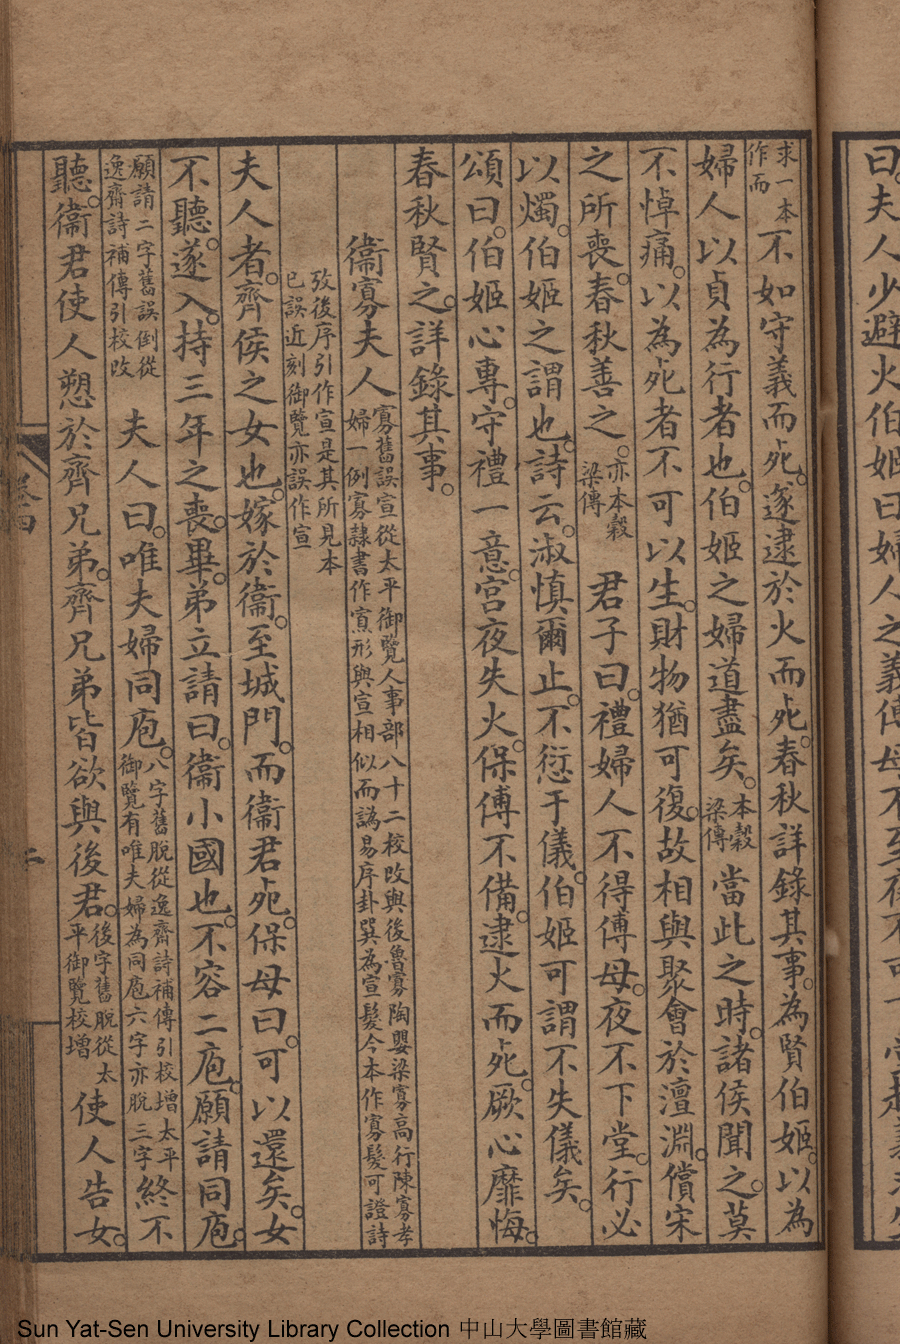 求一本作而不如守義而死。遂逮於火而死。春秋詳錄其事。為賢伯姬。以為
婦人以貞為行者也。伯姬之婦道盡矣。本穀梁傳當此之時。諸侯聞之。莫
不悼痛。以為死者不可以生。財物猶可復。故相與聚會於澶淵。償宋
之所喪。春秋善之。亦本穀梁傳君子曰。禮婦人不得傅母。夜不下堂。行必
以燭。伯姬之謂也。詩云。淑慎爾止。不愆于儀。伯姬可謂不失儀矣。
頌曰。伯姬心專。守禮一意。宮夜失火。保傅不備。逮火而死。厥心靡悔。
春秋賢之。詳錄其事。
衞寡夫人寡舊誤宣從太平御覽人事部八十二校改與後魯寡陶嬰梁寡高行陳寡孝婦一例寡隸書作𡩋形與宣相似而譌易序卦巽為宣髮今本作寡髮可證詩
攷後序引作宣是其所見本已誤近刻御覽亦誤作宣
夫人者。齊侯之女也。嫁於衞。至城門。而衞君死。保母曰。可以還矣。女
不聽。遂入。持三年之喪。畢。弟立請曰。衞小國也。不容二庖。願請同庖。
願請二字舊誤倒從逸齋詩補傳引校改夫人曰。唯夫婦同庖。八字舊脫從逸齋詩補傳引校增太平御覽有唯夫婦為同庖六字亦脫三字終不
聽。衞君使人愬於齊兄弟。齊兄弟皆欲與後君。後字舊脫從太平御覽校增使人告女。
曰。夫人少避火伯姬曰婦人之義傅母不至夜不可下堂
Sun Yat-Sen University Library Collection 中山大學圖書館藏